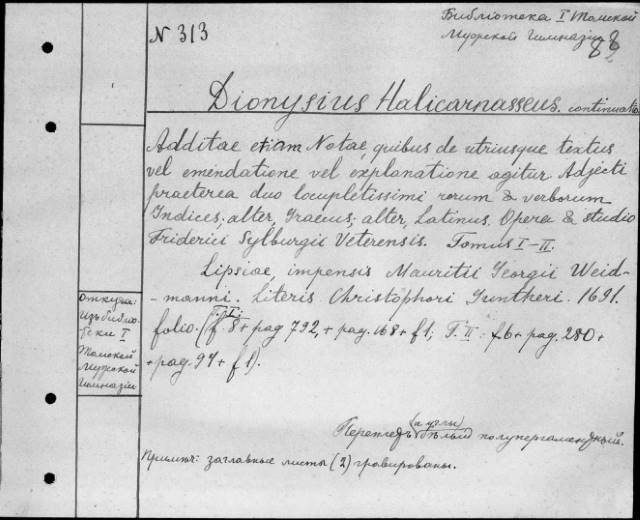 N 313
Библіотека I Томской
Мужской Гимназіи 8
8
Dionysius Halicarnasseus. continuatio.
Additae etiam Notae, quibus de utriusque textus
vel emendatione vel explanatione agitur. Adjecti
praeterea duo locupletissimi rerum & verborum
Indices; alter, Graecus; alter, Latinus. Opera & studio
Friderici Sylburgii Veterensis. Tomus I-II.
Lipsiae, impensis Mauritii Georgii Weid-
-manni. Literis Christophori Guntheri. 1691.
T. I.
folio. (f 8 + pag 792, + pag. 168 + f 1; T. II: f 6 + pag. 280 +
+ pag. 94 + f 1).
Откуда:
изъ библіо-
теки I
Томской
Мужской
Гимназіи
(и углы)
Переплетъ бѣлый полупергаменный.
Примѣч: заглавные листы (2) гравированы.